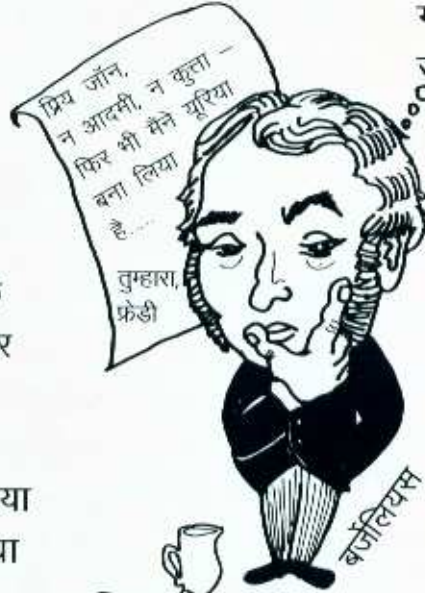 प्रिय जॉन,
न आदमी, न कुत्ता –
फिर भी मैंने यूरिया
बना लिया
है....
तुम्हारा,
फ्रेडी
र
या
बर्ज़ेलियस